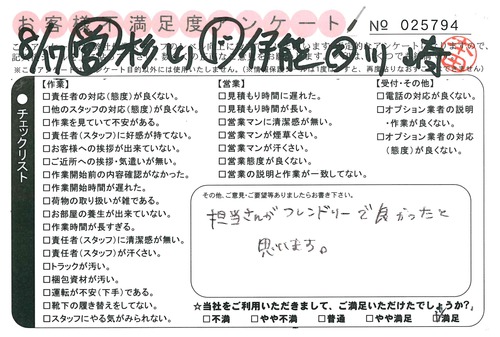 お客様不満足度アンケート
№ 025794
8/17 営 杉山 ド 伊能 ㋱ 川崎
チェックリスト
【作業】
□責任者の対応(態度)が良くない。
□他のスタッフの対応(態度)が良くない。
□作業を見ていて不安がある。
□責任者(スタッフ)に好感が持てない。
□お客様への挨拶が出来ていない。
□ご近所への挨拶・気遣いが無い。
□作業開始前の内容確認がなかった。
□作業開始時間が遅れた。
□荷物の取り扱いが雑である。
□お部屋の養生が出来ていない。
□作業時間が長すぎる。
□責任者(スタッフ)に清潔感が無い。
□責任者(スタッフ)が汗くさい。
□トラックが汚い。
□梱包資材が汚い。
□運転が不安(下手)である。
□靴下の履き替えをしてない。
□スタッフにやる気がみられない。
【営業】
□見積もり時間が長い。
□見積もり時間に遅れた。
□営業マンに清潔感が無い。
□営業マンが煙草くさい。
□営業マンが汗くさい。
□営業態度が良くない。
□営業の説明と作業が一致してない。
【受付・その他】
□電話の対応が良くない。
□オプション業者の説明
・作業が良くない。
□オプション業者の対応
(態度)が良くない。
その他、ご意見・ご要望等ありましたらお書き下さい。
担当さんがフレンドリーで良かったと
思います。
☆当社をご利用いただきまして、ご満足いただけたでしょうか?
□不満 □やや不満 □普通 □やや満足 □満足